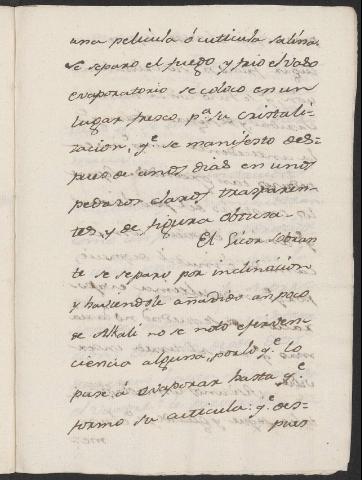 una pelicula ó cuticula salina.
se separo el fuego y frio el vaso
evaporatorio se coloco en un
lugar fresco pª su cristali-
zacion; qᵉ se manifesto des-
pues de unos dias en unos
pedazos claros trasparen-
tes, y de figura obtusa-
El licor sobran
te se separo por inclinacion
y haviendole añadido un poco
de Alkali no se notó eferves-
ciencia alguna, por lo qᵉ lo
puse á evaporar hasta qᵉ
formo su cuticula: qᵉ des-
pues